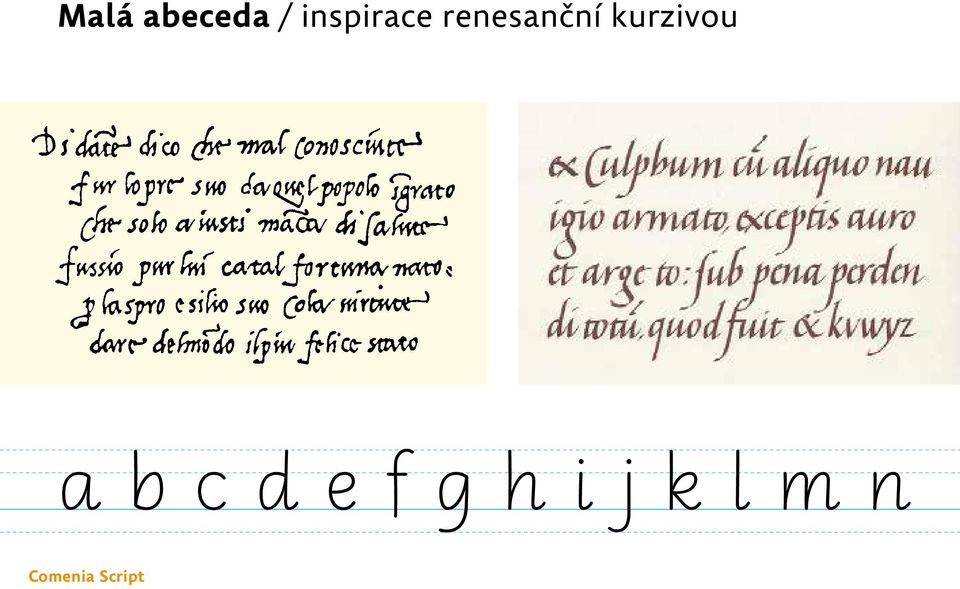 Malá abeceda / inspirace renesanční kurzivou
Di dātē dico che mal conosciute
fur lopre suo da quel popolo īgrato
che solo a iusti māca di salute
fussio pur lui ca tal fortuna nato:
ꝑ laspro esilio suo cola uirtute
dare del mōdo ilpiu felice stato
& Culpbum cū aliquo nau
igio armato, exceptis auro
et argēto: sub pena perden
di totū, quod fuit & kvwyz
a b c d e f g h i j k l m n
Comenia Script